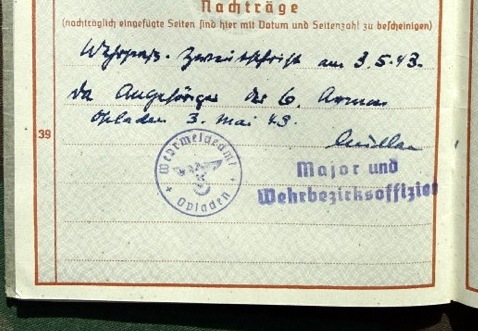 Nachträge
(nachträglich eingefügte Seiten sind hier mit Datum und Seitenzahl zu bescheinigen)
Wehrpass-Zweitschrift am 3.5.43.
da Angehöriger der 6. Armee
Opladen 3. Mai 43.
39
Wehrmeldeamt
Opladen
Major und
Wehrbezirksoffizier